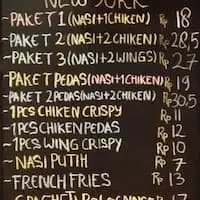 NEW YORK
~PAKET 1 (NASI+1CHIKEN) Rp 18
~PAKET 2 (NASI+2CHIKEN) Rp 28,5
~PAKET 3 (NASI+2WINGS) Rp 27
~PAKET PEDAS (NASI+1CHIKEN) Rp 19
~PAKET 2 PEDAS (NASI+2CHIKEN) Rp 30.5
~1PCS CHIKEN CRISPY Rp 11
~1PCS CHIKEN PEDAS Rp 12
~1PCS WING CRISPY Rp 10
~NASI PUTIH Rp 7
~FRENCH FRIES Rp 13